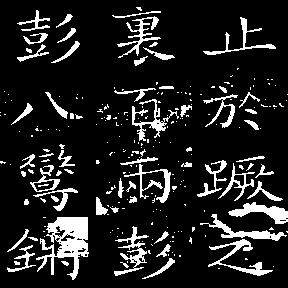 止於蹶之
裏百兩彭
彭八鸞鏘